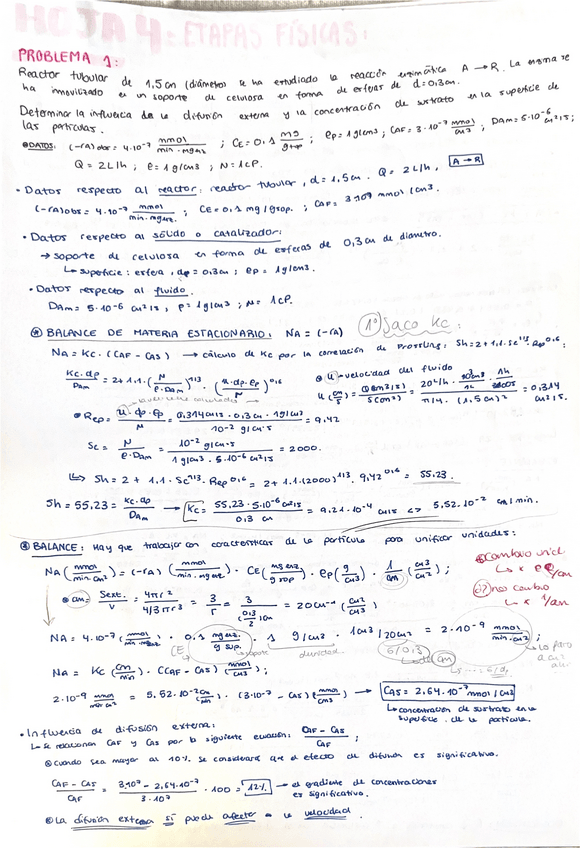 HOJA 4: ETAPAS FÍSICAS:
PROBLEMA 1:
Reactor tubular de 1,5 cm (diámetro) se ha estudiado la reacción enzimática A → R. La enzima se
ha inmovilizado en un soporte de celulosa en forma de esferas de d=0,3cm.
Determinar la influencia de la difusión externa y la concentración de sustrato en la superficie de
las partículas.
DATOS: (-rA)obs = 4·10⁻⁷ mmol/min·mgenz ; CE = 0,1 mg/gsop ; ep = 1g/cm³ ; CAF = 3·10⁻⁷ mmol/cm³ ; DAm = 5·10⁻⁶ cm²/s ;
Q = 2L/h ; e = 1g/cm³ ; N = 1cP. A → R
• Datos respecto al reactor: reactor tubular, d = 1,5cm. Q = 2L/h,
(-rA)obs = 4·10⁻⁷ mmol/min·mgenz. ; CE = 0,1 mg/gsop. ; CAF = 3·10⁻⁷ mmol/cm³.
• Datos respecto al sólido o catalizador:
→ soporte de celulosa en forma de esferas de 0,3 cm de diametro.
↳ superficie: esfera, dp = 0,3cm ; ep = 1g/cm³.
• Datos respecto al fluido.
DAm = 5·10⁻⁶ cm²/s, e = 1g/cm³ ; N = 1cP.
BALANCE DE MATERIA ESTACIONARIO: NA = (-rA) 1º Saco Kc:
NA = Kc·(CAF - CAS) → cálculo de Kc por la correlación de Frossling: Sh = 2 + 1,1·Sc^1/3·Rep^0,6
Kc·dp/DAm = 2 + 1,1·(N/e·DAm)^1/3·(u·dp·ep/N)^0,6
u → velocidad del fluido
u (cm/s) = Q(cm³/s)/S(cm²) = 2L/h · 10³cm³/1L · 1h/3600s / π/4·(1,5cm)² = 0,314 cm/s.
Rep = u·dp·ep/N = 0,314cm/s·0,3cm·1g/cm³ / 10⁻² g/cm·s = 9,42
Sc = N/e·DAm = 10⁻² g/cm·s / 1g/cm³·5·10⁻⁶ cm²/s = 2000.
↳ Sh = 2 + 1,1·Sc^1/3·Rep^0,6 = 2 + 1,1·(2000)^1/3·9,42^0,6 = 55,23.
Sh = 55,23 = Kc·dp/DAm → Kc = 55,23·5·10⁻⁶ cm²/s / 0,3 cm = 9,21·10⁻⁴ cm/s <> 5,52·10⁻² cm/min.
BALANCE: Hay que trabajar con características de la partícula para unificar unidades:
NA (mmol/min·cm²) = (-rA) (mmol/min·mgenz) · CE (mgenz/gsop) · ep (g/cm³) · 1/am (cm³/cm²) ;
am = Sext./V = 4πr²/4/3πr³ = 3/r = 3/(0,3/2)cm = 20cm⁻¹ (cm²/cm³)
NA = 4·10⁻⁷ (mmol/min·mgenz) · 0,1 mgenz/gsop. · 1 g/cm³ · 1cm³/20cm² = 2·10⁻⁹ mmol/min·cm² ;
CE soporte densidad. 6/0,3 am
NA = Kc (cm/min)·(CAF - CAS) (mmol/cm³) ;
2·10⁻⁹ mmol/min·cm² = 5,52·10⁻² (cm/min)·(3·10⁻⁷ - CAS) (mmol/cm³) → CAS = 2,64·10⁻⁷ mmol/cm³
↳ concentración de sustrato en la
superficie de la partícula.
• Influencia de difusión externa:
↳ se relacionan CAF y CAS por la siguiente ecuación: CAF - CAS/CAF ;
Cuando sea mayor al 10% se considerará que el efecto de difusión es significativo.
CAF - CAS/CAF = 3·10⁻⁷ - 2,64·10⁻⁷/3·10⁻⁷ · 100 = 12% → el gradiente de concentraciones
es significativo.
La difusión externa sí puede afectar a la velocidad.